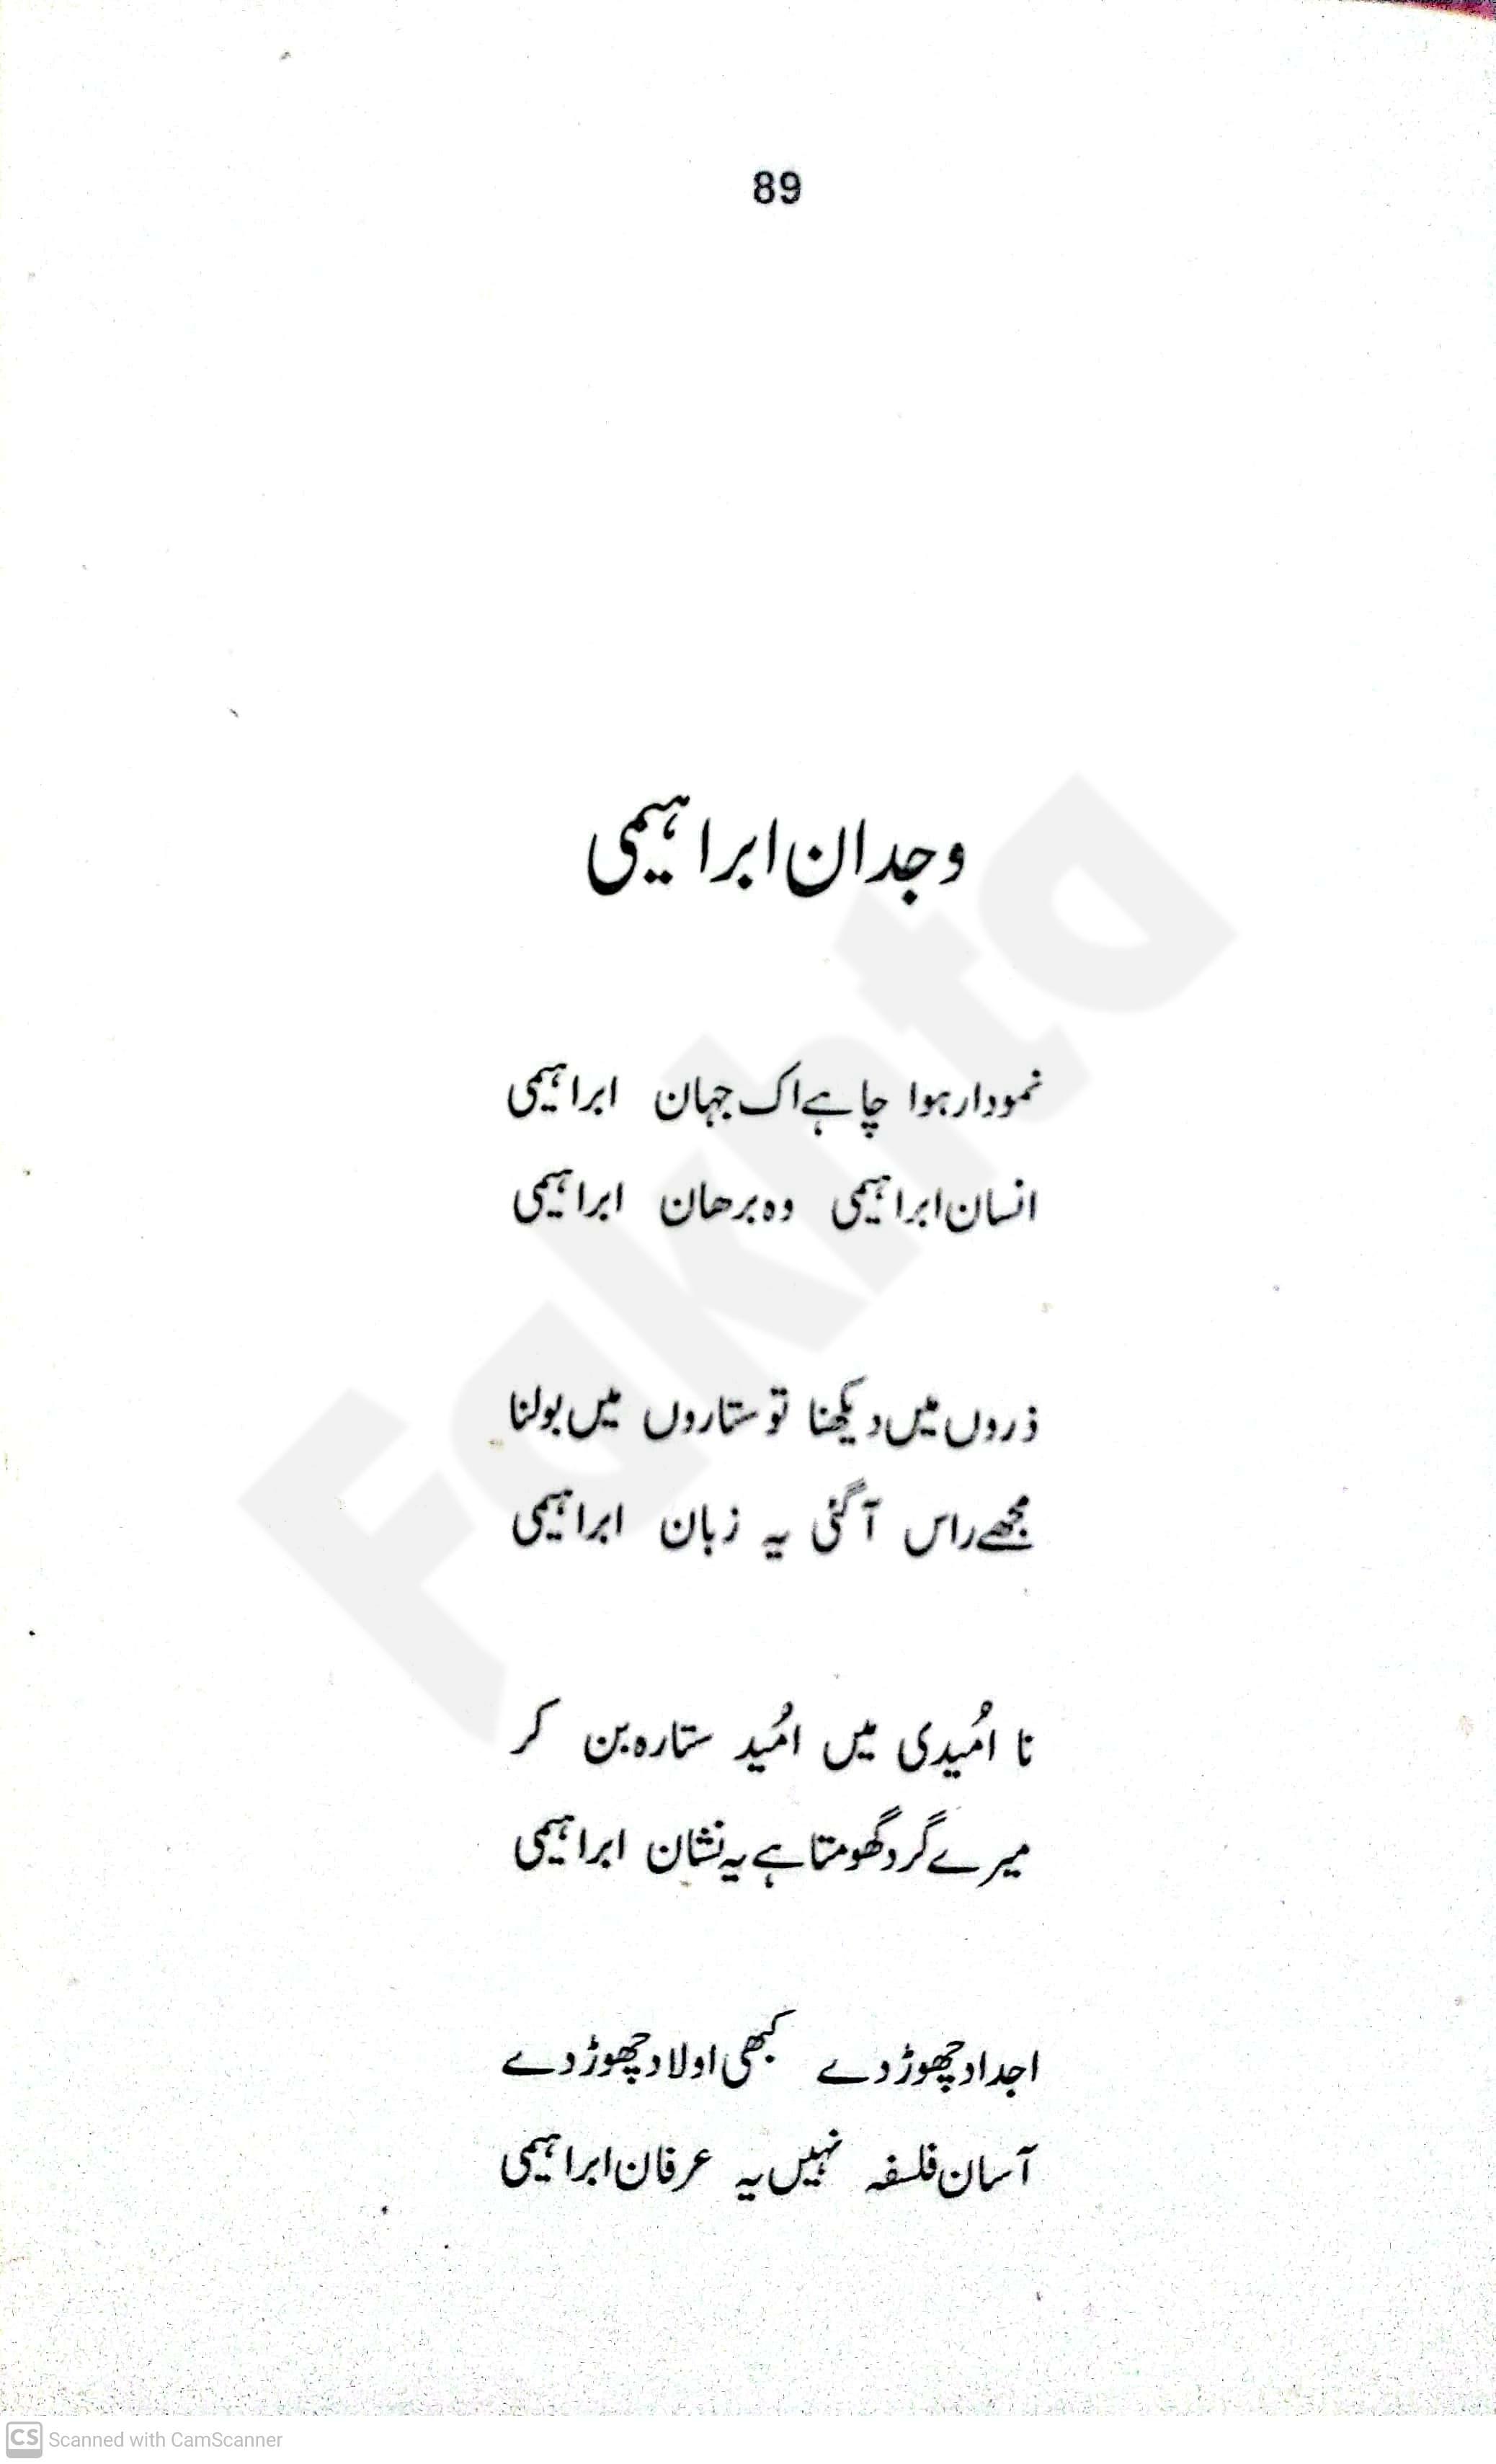 89
وجدان ابراہیمی
نمودار ہوا چاہے اک جہان ابراہیمی
انسان ابراہیمی وہ برھان ابراہیمی
ذروں میں دیکھنا تو ستاروں میں بولنا
مجھے راس آگئی یہ زبان ابراہیمی
نا اُمیدی میں اُمید ستارہ بن کر
میرے گرد گھومتا ہے یہ نشان ابراہیمی
اجداد چھوڑ دے کبھی اولاد چھوڑ دے
آسان فلسفہ نہیں یہ عرفان ابراہیمی
Fakhta
CS Scanned with CamScanner